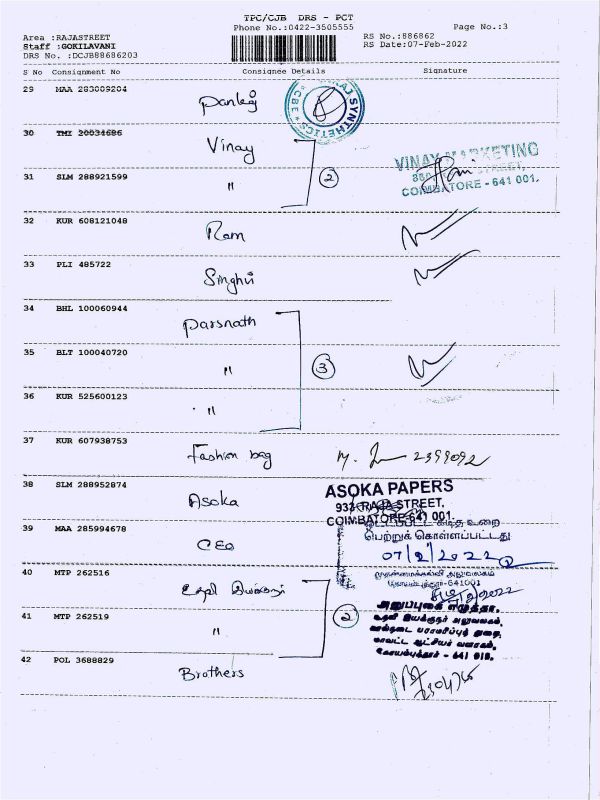 TPC/CJB DRS - PCT
Phone No.:0422-3505555
Page No.:3
Area :RAJASTREET
Staff :GOKILAVANI
DRS No. :DCJB88686203
RS No.:886862
RS Date:07-Feb-2022
S No Consignment No Consignee Details Signature
29 MAA 283009204
SYNTHETICS CBE
30 TMZ 20034686 Vinay
VINAY MARKETING
STREET,
COIMBATORE - 641 001.
31 SLM 288921599 "
②
32 KUR 608121048 Ram
33 PLI 485722 Singhvi
34 BHL 100060944 Parsnath
35 BLT 100040720 "
③
36 KUR 525600123 "
37 KUR 607938753 Fashion bag 2399092
38 SLM 288952874 Asoka
ASOKA PAPERS
933, RAJA STREET,
COIMBATORE-641 001.
39 MAA 285994678 CEO
கடித உறை
பெற்றுக் கொள்ளப்பட்டது
07/2/2022
முதன்மைக்கல்வி அலுவலகம்
-641001
40 MTP 262516
41 MTP 262519 "
②
உதவி இயக்குநர் அலுவலகம்,
கால்நடை பராமரிப்புத் துறை,
மாவட்ட ஆட்சியர் வளாகம்,
கோயம்புத்தூர் - 641 018.
42 POL 3688829 Brothers